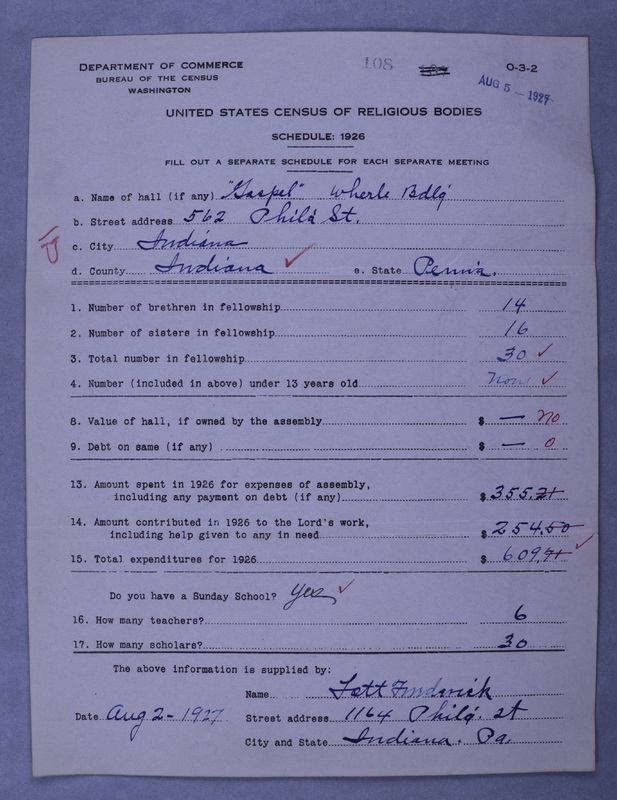 DEPARTMENT OF COMMERCE
BUREAU OF THE CENSUS
WASHINGTON
108
O-3-2
AUG 5 - 1927
UNITED STATES CENSUS OF RELIGIOUS BODIES
SCHEDULE: 1926
FILL OUT A SEPARATE SCHEDULE FOR EACH SEPARATE MEETING
a. Name of hall (if any) "Gospel" Wherle Bdlg
b. Street address 562 Phila St.
c. City Indiana
d. County Indiana ✓ e. State Penn'a.
1. Number of brethren in fellowship 14
2. Number of sisters in fellowship 16
3. Total number in fellowship 30 ✓
4. Number (included in above) under 13 years old None ✓
8. Value of hall, if owned by the assembly $ — no
9. Debt on same (if any) $ — 0
13. Amount spent in 1926 for expenses of assembly,
including any payment on debt (if any) $ 355.21
14. Amount contributed in 1926 to the Lord's work,
including help given to any in need $ 254.50
15. Total expenditures for 1926 $ 609.71 ✓
Do you have a Sunday School? Yes ✓
16. How many teachers? 6
17. How many scholars? 30
The above information is supplied by:
Name Frederick
Date Aug 2 - 1927 Street address 1164 Phila. St
City and State Indiana. Pa.